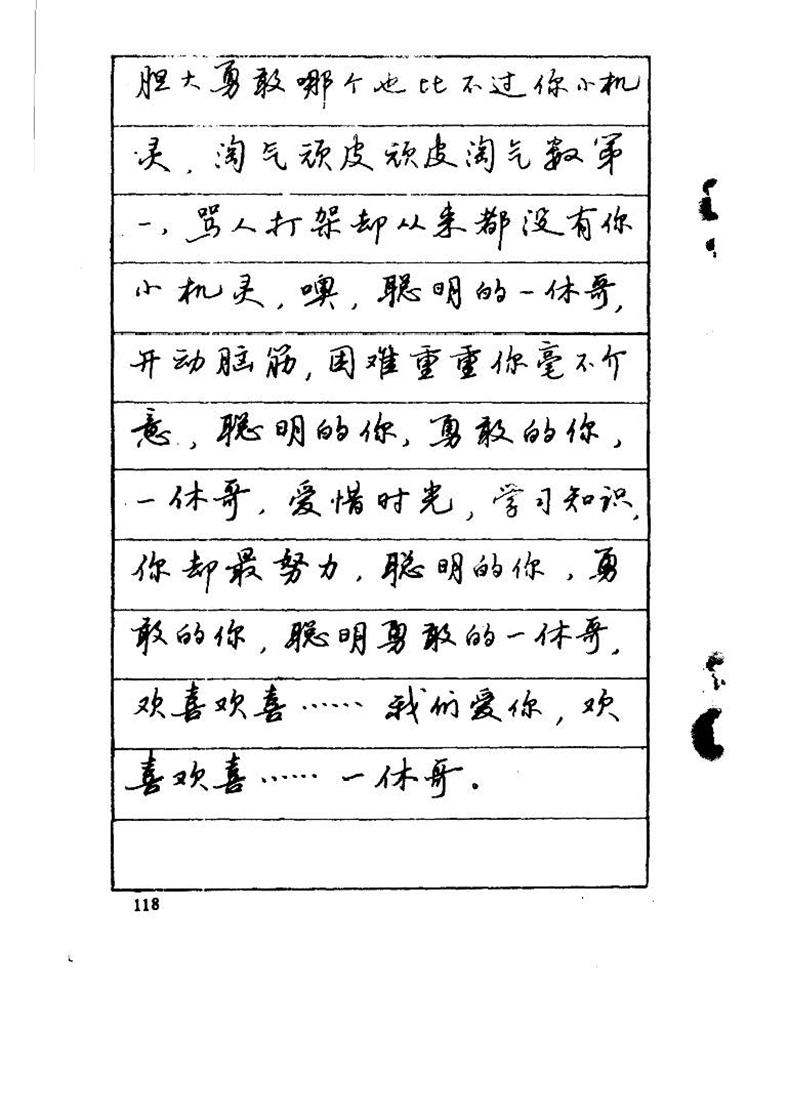 胆大勇敢哪个也比不过你小机
灵，淘气顽皮顽皮淘气数第
一，骂人打架却从来都没有你
小机灵，噢，聪明的一休哥，
开动脑筋，困难重重你毫不介
意，聪明的你，勇敢的你，
一休哥，爱惜时光，学习知识，
你却最努力，聪明的你，勇
敢的你，聪明勇敢的一休哥，
欢喜欢喜……我们爱你，欢
喜欢喜……一休哥。
118